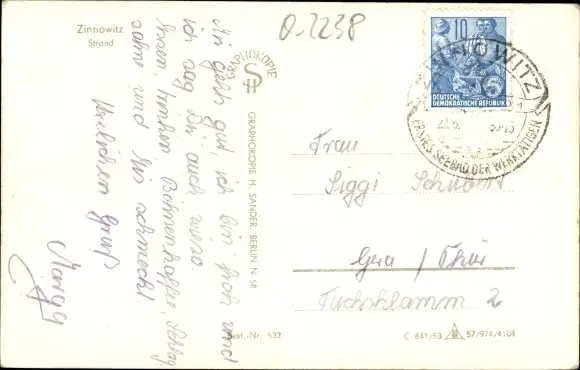 Zinnowitz
Strand
O-2238
Mir geht gut, ich bin froh und
ich sag dir auch wieso
Essen, trinken Bohnenkaffee, Schlag
sahne und Eis schmeckt
Herzlichen Gruß
GRAPHOKOPIE
SH
GRAPHOKOPIE H. SANDER, BERLIN N 58
Best.-Nr. 532
10
5
DEUTSCHE
DEMOKRATISCHE REPUBLIK
ZINNOWITZ
SEEBAD DER WERKTÄTIGEN
Frau
Siggi Schubert
Gera / Thür
2
C 841/53